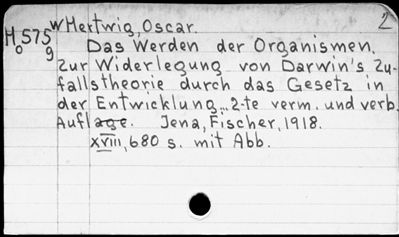 2
H575g w Hertwig, Oscar.
o Das Werden der Organismen.
Zur Widerlegung von Darwin's Zu-
fallstheorie durch das Gesetz in
der Entwicklung... 2-te verm. und verb.
Auflage. Jena, Fischer, 1918.
XVIII, 680 s. mit Abb.